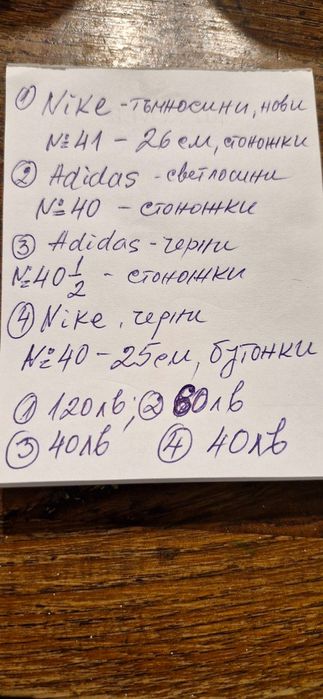 ① Nike - тъмносини, нови
№ 41 - 26 см, стоножки
② Adidas - светлосини
№ 40 - стоножки
③ Adidas - черни
№ 40 1/2 - стоножки
④ Nike, черни
№ 40 - 25 см, бутонки
① 120 лв; ② 60 лв
③ 40 лв ④ 40 лв